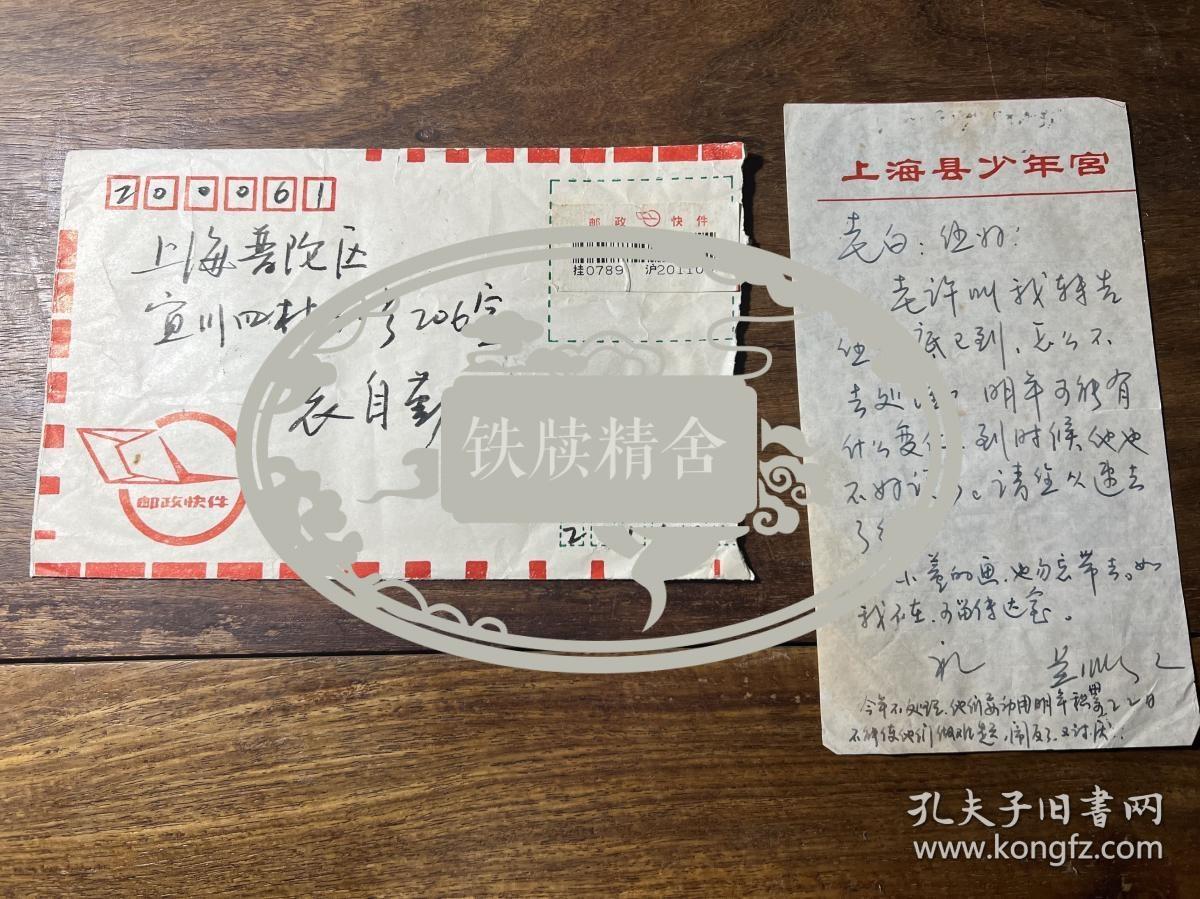 200061
上海普陀区
宜川四村 号206室
衣自勤
邮政快件
挂0789 沪20110
邮政快件
铁牍精舍
上海县少年宫
老白：您好！
老许叫我转告
您 底已到，怎么不
去处理？明年可能有
什么变化，到时候他也
不好 请您火速去
小姜的画，也勿忘带去。如
我不在，可留传达室。
礼
今年不处理，他们要动用明年 22日
不能使他们做难题，
孔夫子旧书网
www.kongfz.com